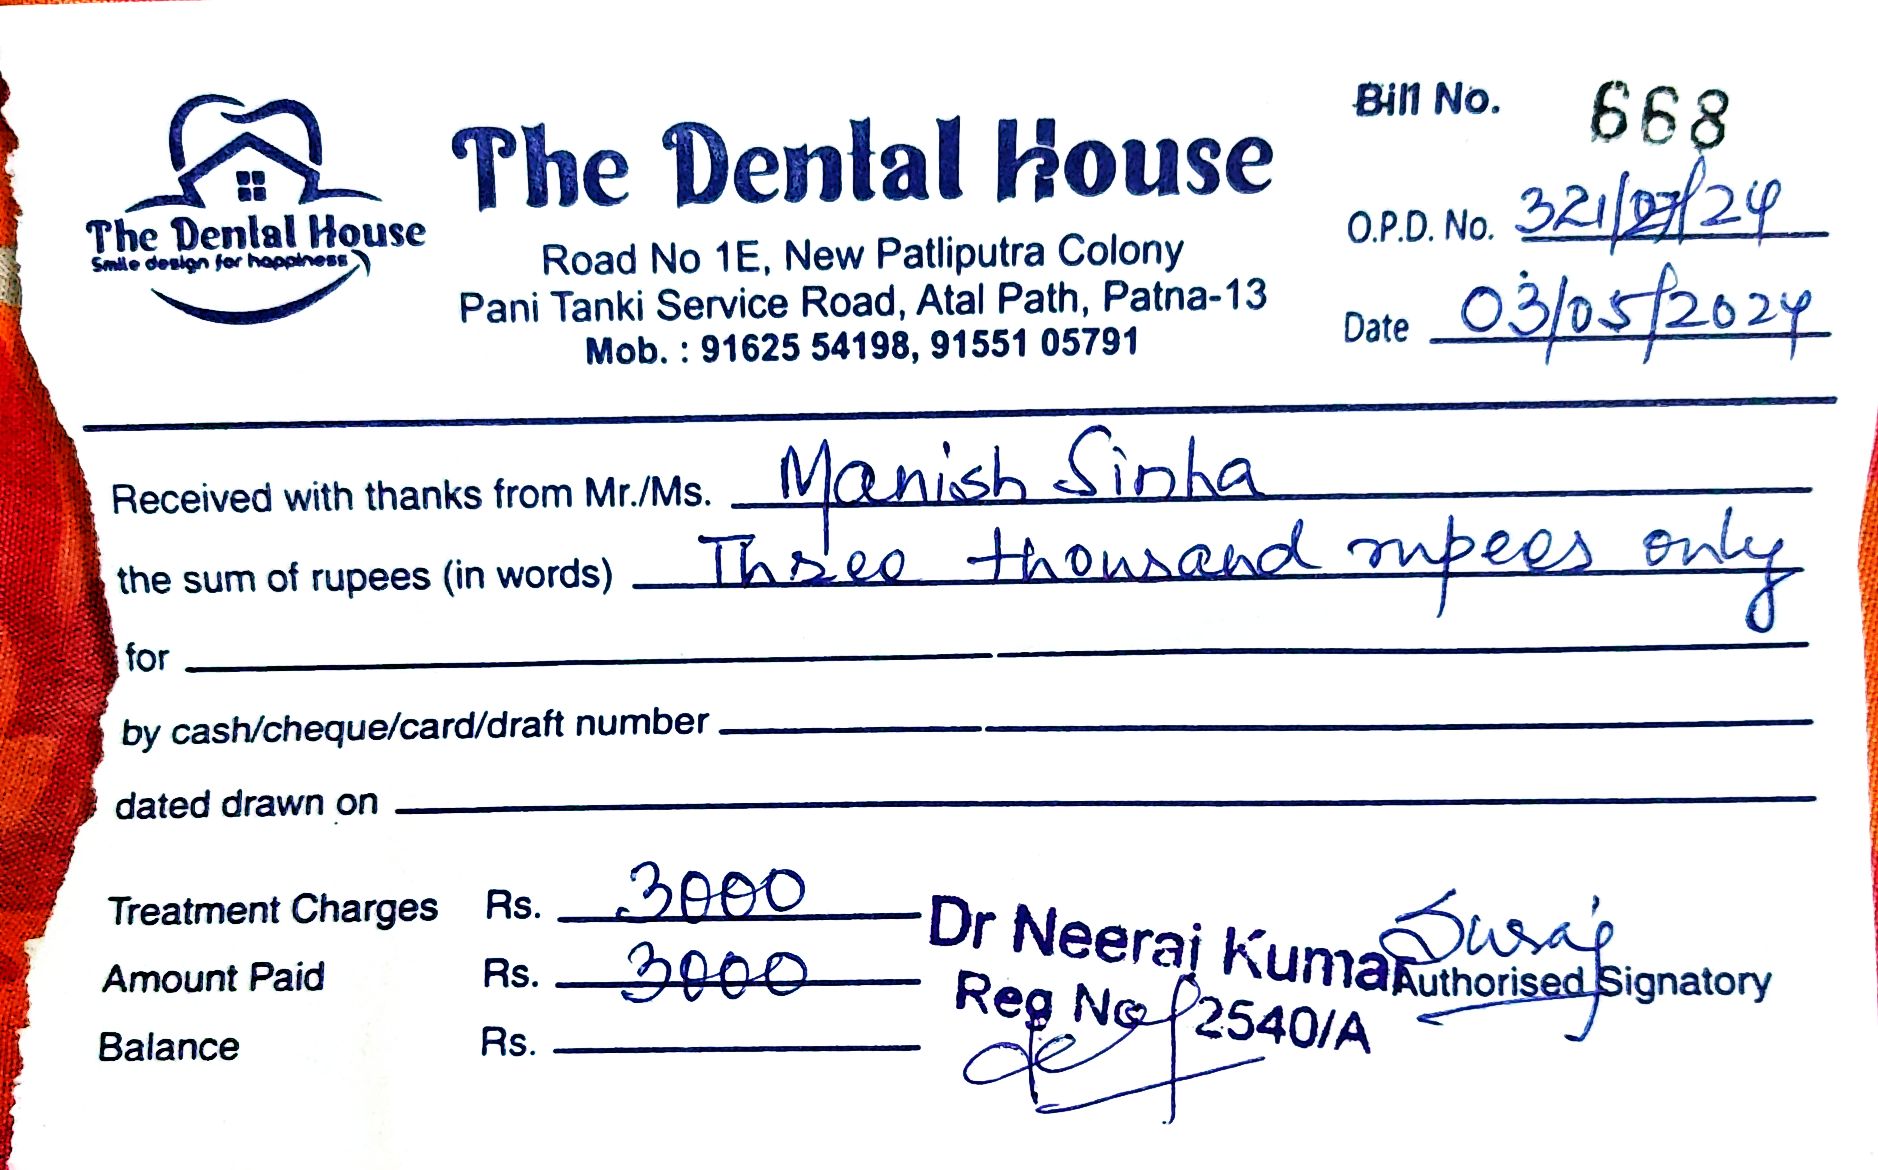 The Dental House
Smile design for happiness
The Dental House
Road No 1E, New Patliputra Colony
Pani Tanki Service Road, Atal Path, Patna-13
Mob. : 91625 54198, 91551 05791
Bill No. 668
O.P.D. No. 321/07/24
Date 03/05/2024
Received with thanks from Mr./Ms. Manish Sinha
the sum of rupees (in words) Three thousand rupees only
for
by cash/cheque/card/draft number
dated drawn on
Treatment Charges Rs. 3000
Amount Paid Rs. 3000
Balance Rs.
Dr Neeraj Kumar
Reg No 2540/A
Suraj
Authorised Signatory